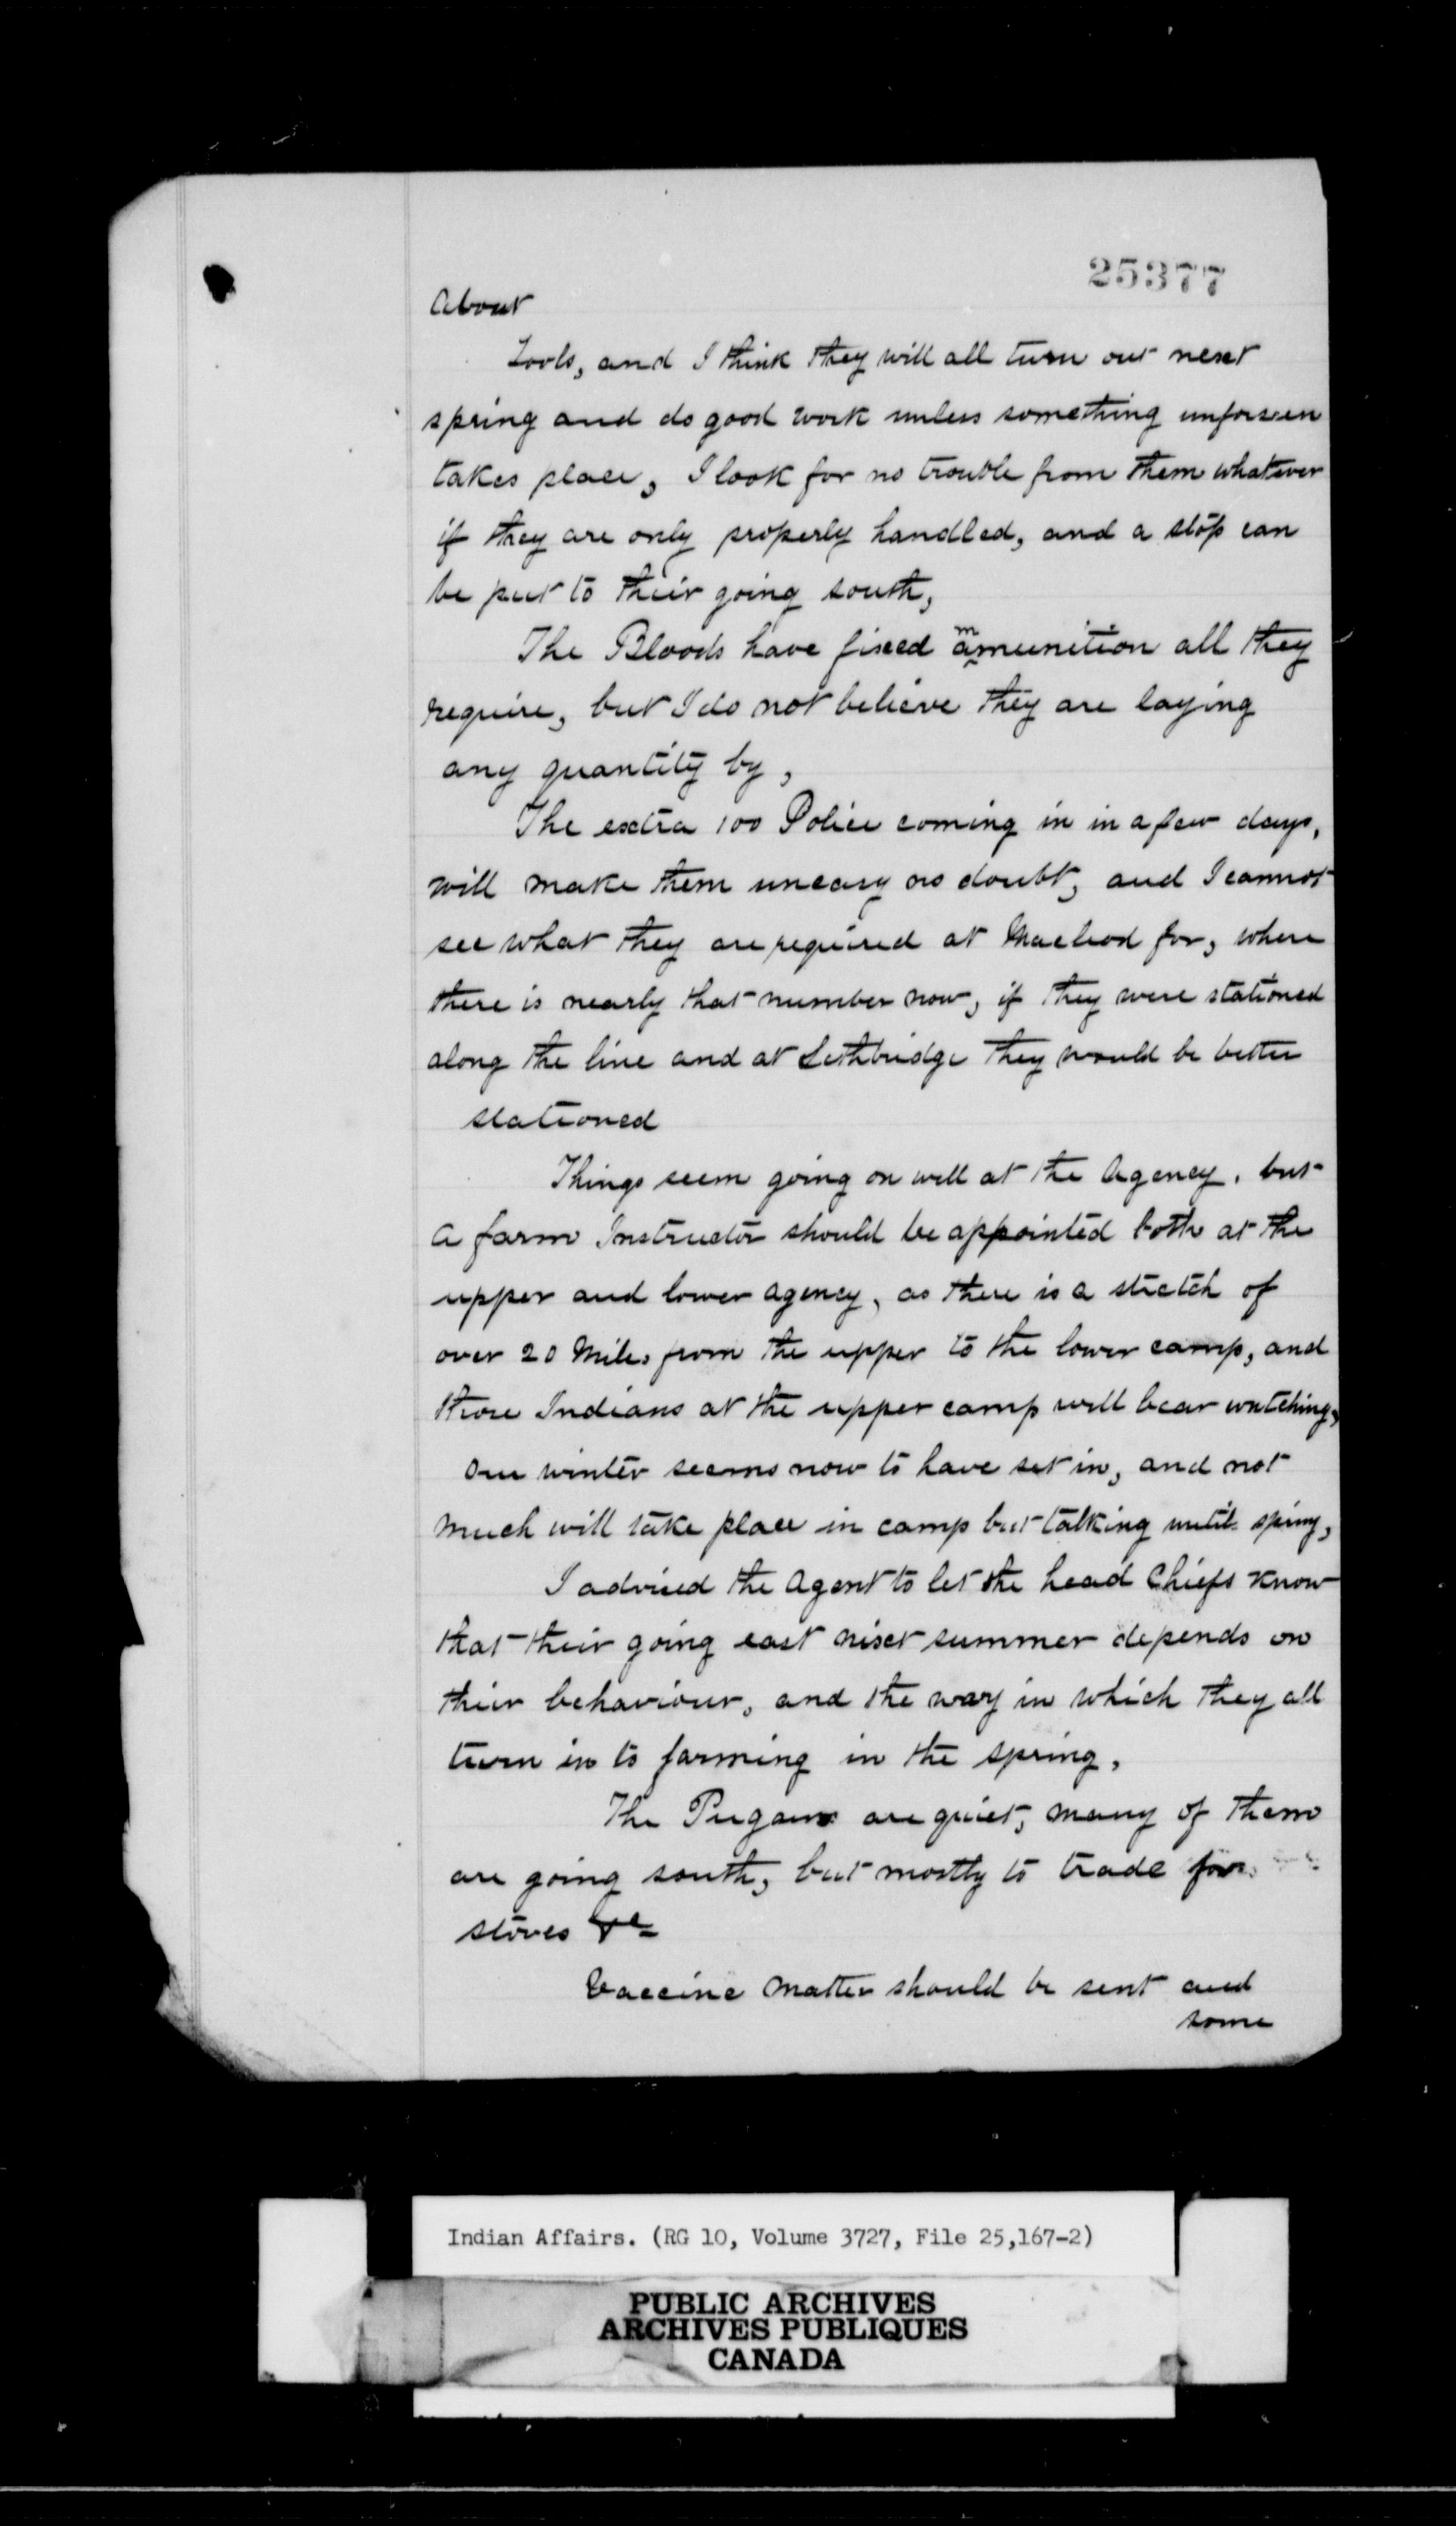 25377
About
Tools, and I think they will all turn out next
spring and do good work unless something unforseen
takes place, I look for no trouble from them whatever
if they are only properly handled, and a stop can
be put to their going south,
The Bloods have fixed ammunition all they
require, but I do not believe they are laying
any quantity by,
The extra 100 Police coming in in a few days,
will make them uneasy no doubt, and I cannot
see what they are required at Macleod for, where
there is nearly that number now, if they were stationed
along the line and at Lethbridge they would be better
stationed
Things seem going on well at the Agency, but
a farm Instructor should be appointed both at the
upper and lower agency, as there is a stretch of
over 20 Miles from the upper to the lower camp, and
those Indians at the upper camp will bear watching,
Our winter seems now to have set in, and not
much will take place in camp but talking until spring,
I advised the Agent to let the head Chiefs know
that their going east next summer depends on
their behaviour, and the way in which they all
turn in to farming in the spring,
The Piegans are quiet, many of them
are going south, but mostly to trade for
stoves &c
Vaccine matter should be sent and
some
Indian Affairs. (RG 10, Volume 3727, File 25,167-2)
PUBLIC ARCHIVES
ARCHIVES PUBLIQUES
CANADA